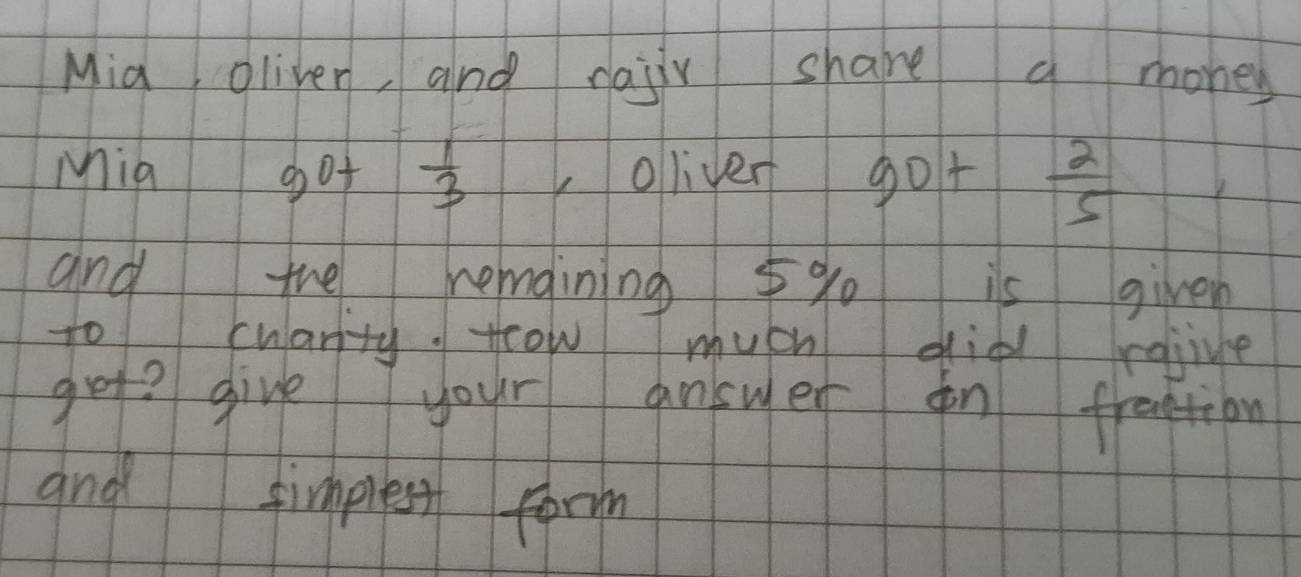 Mia, Oliver, and rajiv share a money
Mia got 1/3, Oliver got 2/5,
and the remaining 5% is given
to charity. How much did rajive
get? give your answer in fraction
and simplest form